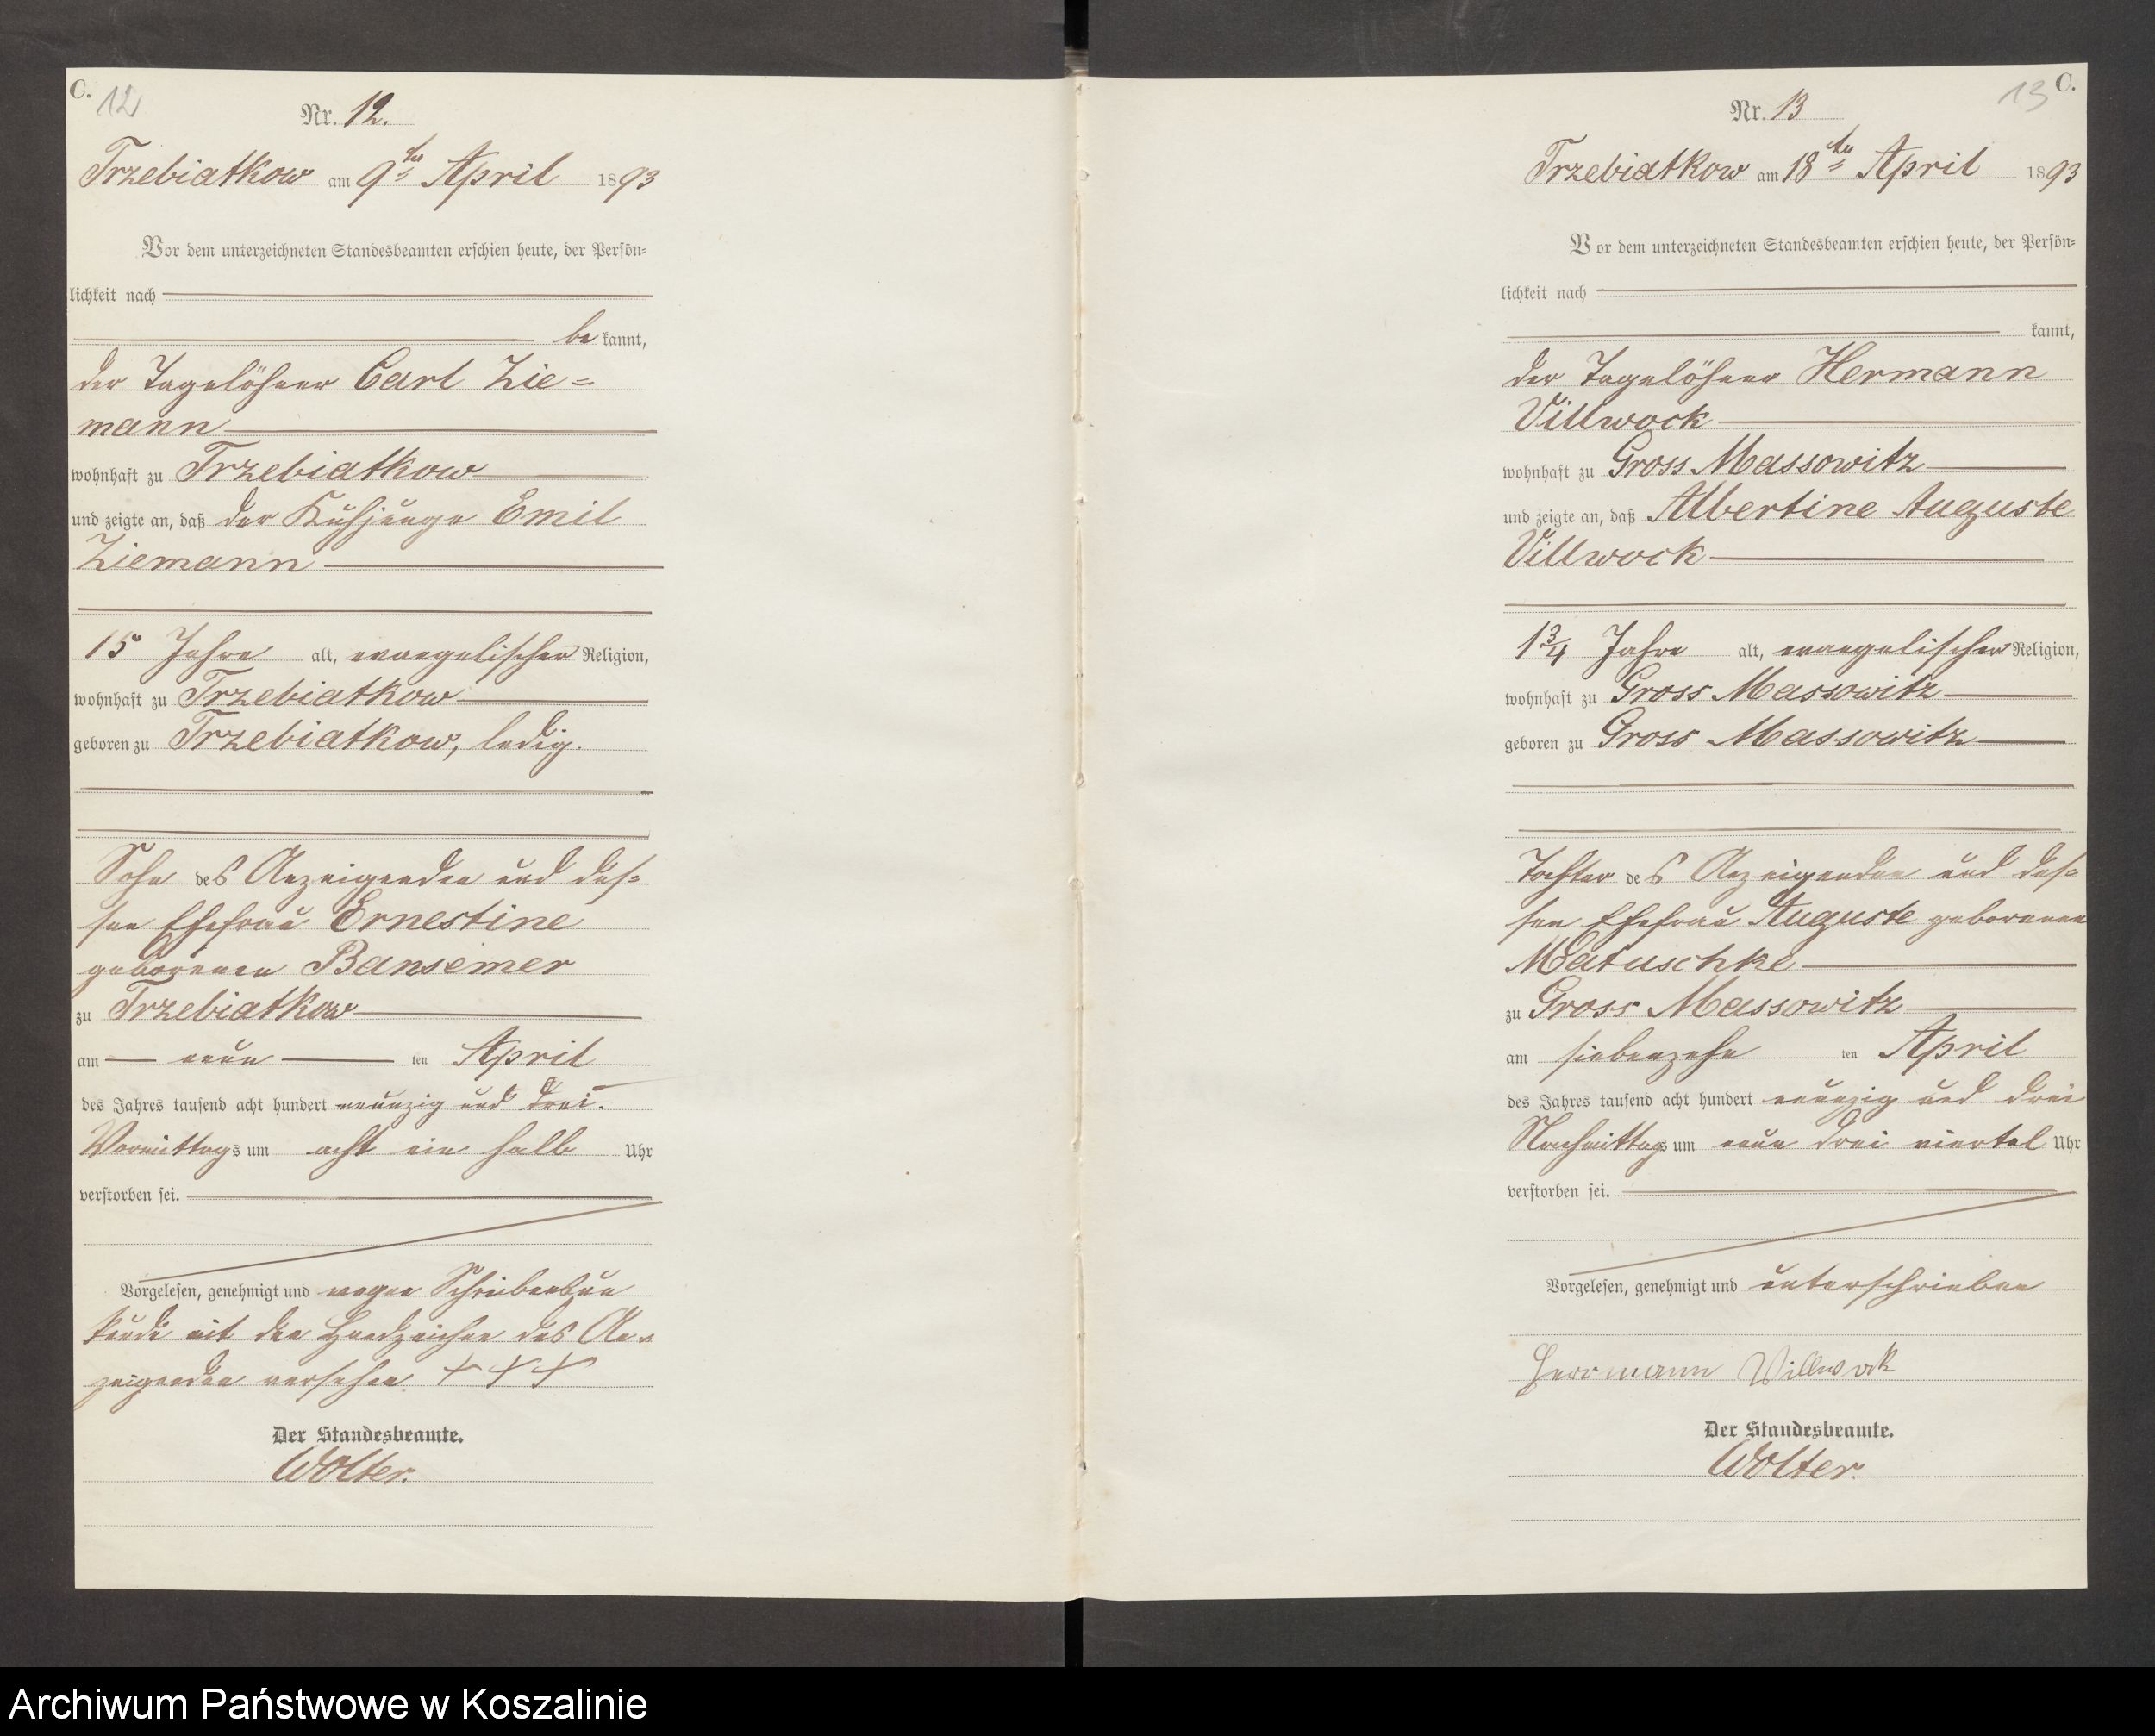 C.
12
Nr. 12.
Trzebiatkow am 9ten April 1893
Vor dem unterzeichneten Standesbeamten erschien heute, der Persön-
lichkeit nach
be kannt,
der Tagelöhner Carl Zie=
mann
wohnhaft zu Trzebiatkow
und zeigte an, daß der Kuhjunge Emil
Ziemann
15 Jahre alt, evangelischer Religion,
wohnhaft zu Trzebiatkow
geboren zu Trzebiatkow, ledig.
Sohn des Anzeigenden und des=
sen Ehefrau Ernestine
geborenen Bansemer
zu Trzebiatkow
am neun ten April
des Jahres tausend acht hundert neunzig und drei.
Vormittags um acht ein halb Uhr
verstorben sei.
Vorgelesen, genehmigt und wegen Schreibensun
kunde mit den Handzeichen des An=
zeigenden versehen. + + +
Der Standesbeamte.
Wolter.
13
C.
Nr. 13
Trzebiatkow am 18ten April 1893
Vor dem unterzeichneten Standesbeamten erschien heute, der Persön-
lichkeit nach
kannt,
der Tagelöhner Hermann
Villwock
wohnhaft zu Gross Massowitz
und zeigte an, daß Albertine Auguste
Villwock
1 3/4 Jahre alt, evangelischer Religion,
wohnhaft zu Gross Massowitz
geboren zu Gross Massowitz
Tochter des Anzeigenden und des=
sen Ehefrau Auguste geborenen
Matuschke
zu Gross Massowitz
am siebenzehn ten April
des Jahres tausend acht hundert neunzig und drei
Nachmittags um neun drei viertel Uhr
verstorben sei.
Vorgelesen, genehmigt und unterschrieben
Herrmann Willwock
Der Standesbeamte.
Wolter.
Archiwum Państwowe w Koszalinie